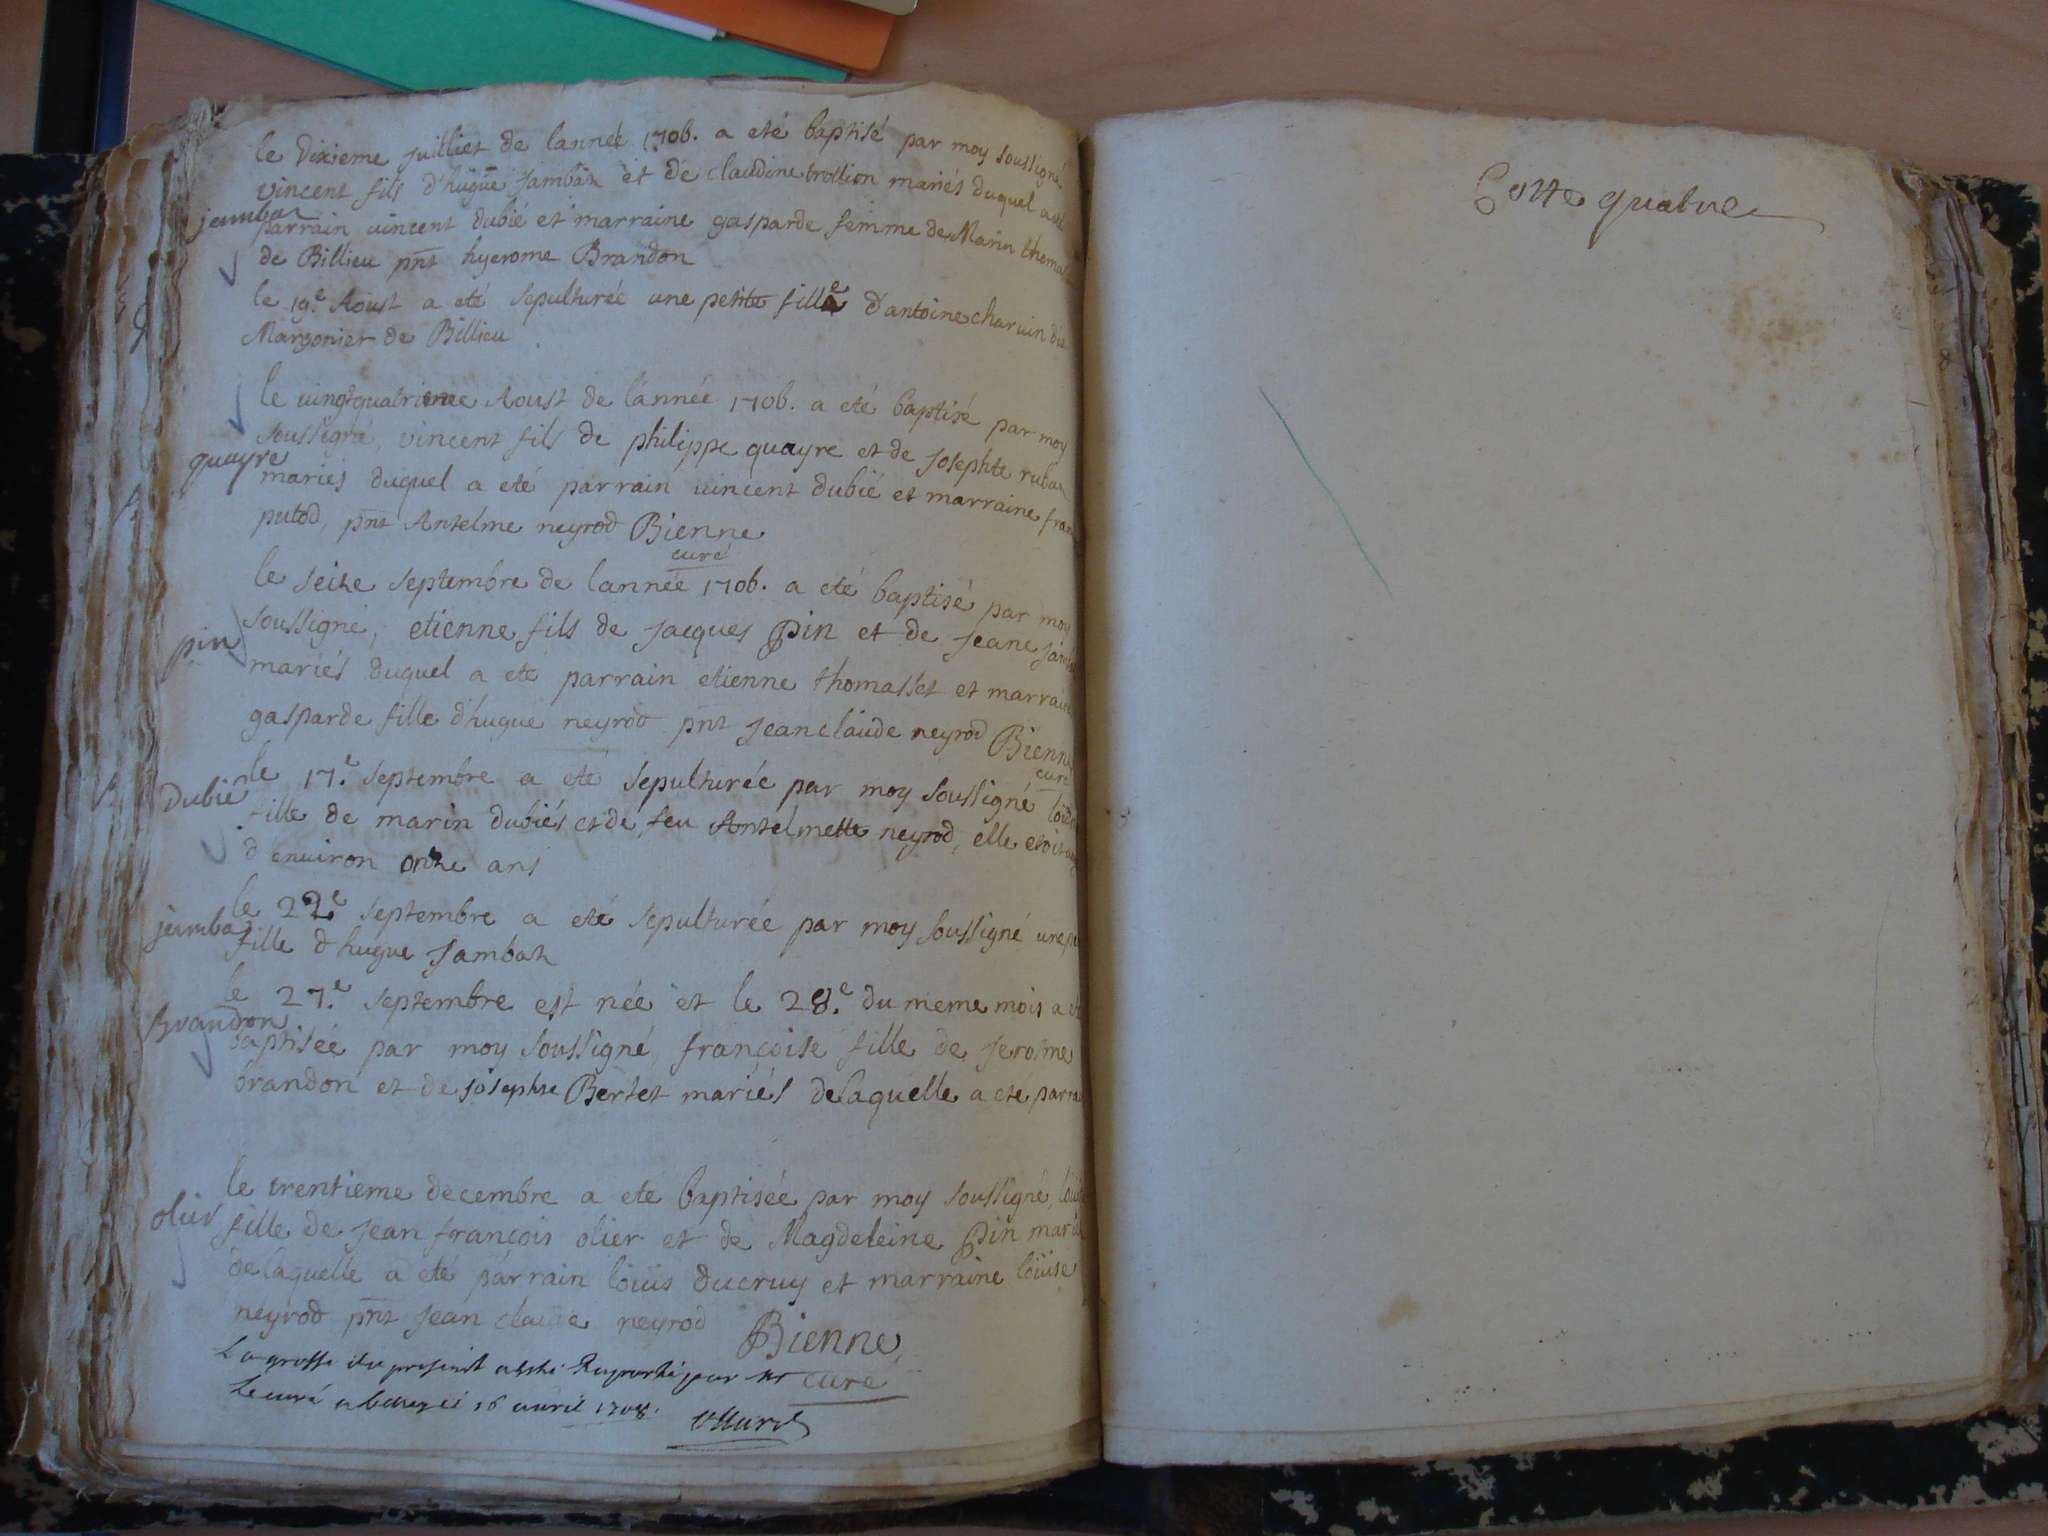 le dixieme juilliet de lannée 1706. a eté baptisé par moy soussigné
vincent fils d'hugue Jambaz et de claudine trollion mariés duquel a eté
jambaz
parrain vincent dubié et marraine gasparde femme de Marin
de Billieu pnt hyerome Brandon
le 19e Aoust a eté sepulturée une petite fille d'antoine charvin dit
Margonier de Billieu
le vingtquatrieme Aoust de lannée 1706. a eté baptisé par moy
soussigné, vincent fils de philippe quayre et de josephte
quayre
mariés duquel a eté parrain vincent dubié et marraine
putod, pnt Antelme neyrod Bienne
curé
le seize septembre de lannée 1706. a eté baptisé par moy
soussigné, etienne fils de jacques pin et de jeane
pin
mariés duquel a eté parrain etienne thomasset et marraine
gasparde fille d'hugue neyrod pnt jean claude neyrod Bienne
curé
Dubié
le 17e septembre a eté sepulturée par moy soussigné
fille de marin dubiés et de feu Antelmette neyrod, elle etoit
d'environ onze ans
le 22e septembre a eté sepulturée par moy soussigné une
jamba
fille d'hugue Jambaz
le 27e septembre est née et le 28e du meme mois a
Brandon
baptisée par moy soussigné, françoise fille de jerosme
brandon et de josephte Bertet mariés delaquelle a eté
le trentieme decembre a eté baptisée par moy soussigné,
olier
fille de jean françois olier et de Magdeleine pin
delaquelle a eté parrain loüis ducruy et marraine loüise
neyrod pnt jean claude neyrod Bienne
curé
La grosse du present a esté Raportée par Mr
Le curé a 16 avril 1708.
Cotte quatre